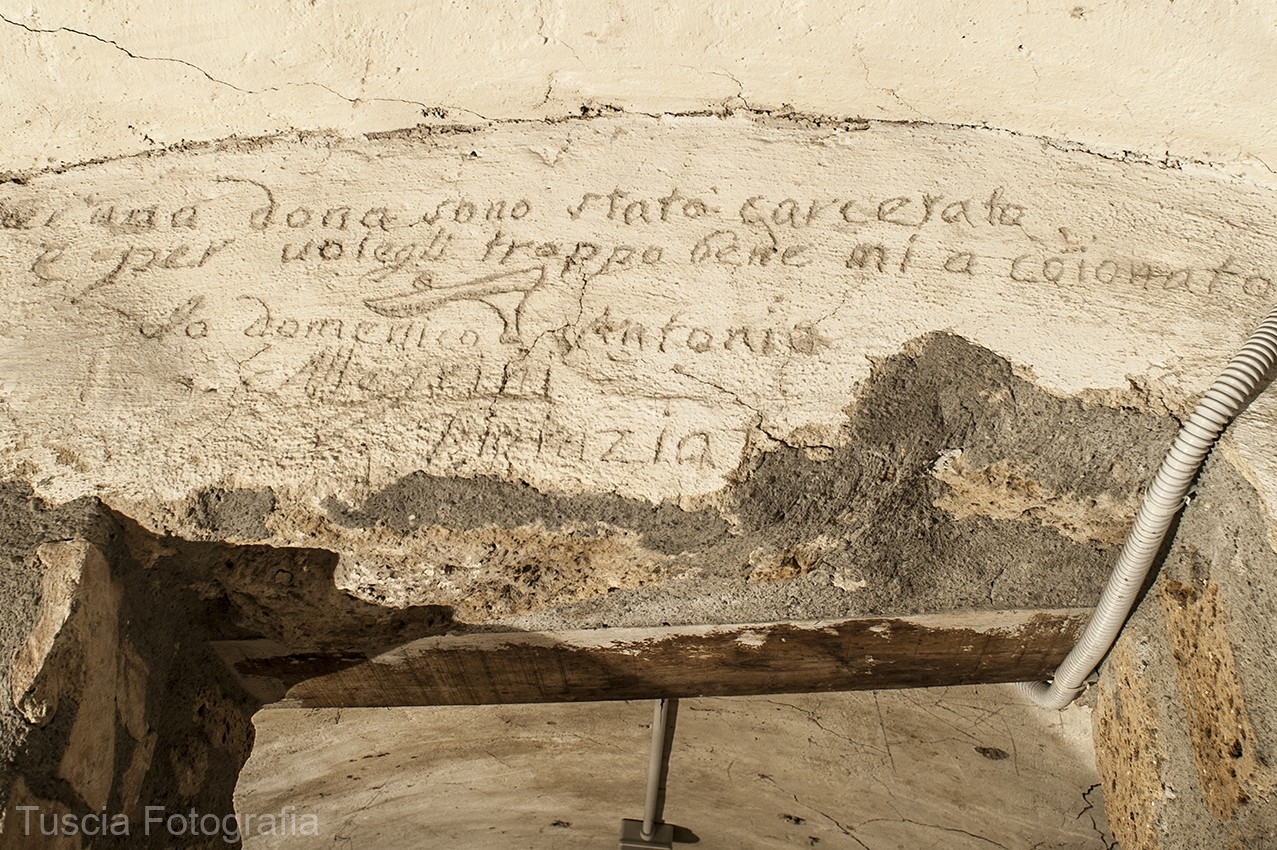 er una dona sono stata carcerata
e per volegli troppo bene mi a coionato
Io domenico Antonio
Tuscia Fotografia